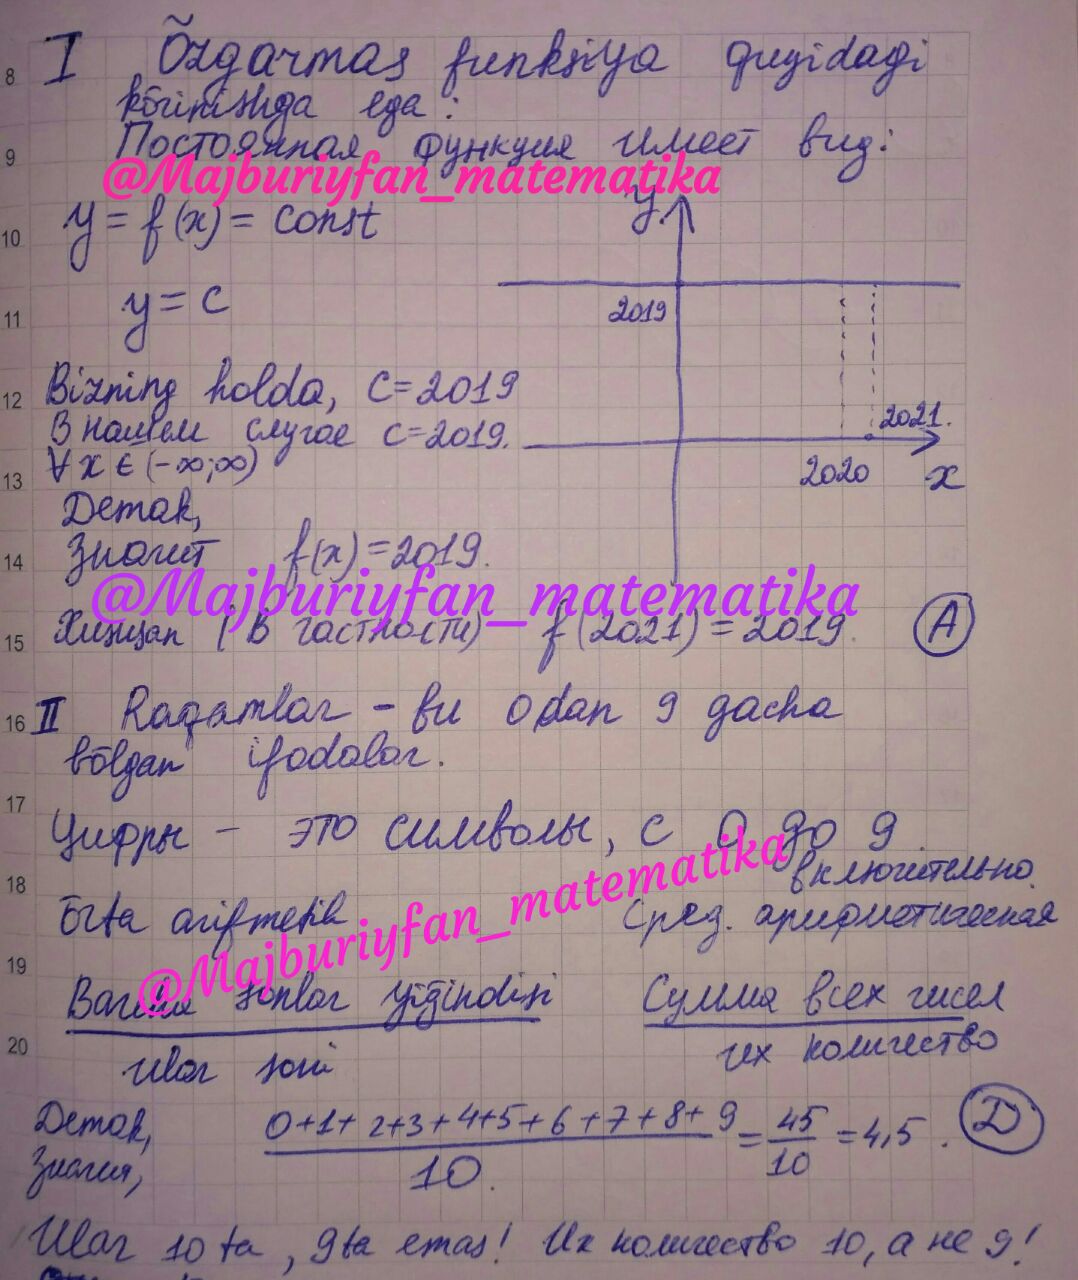 8 I Õzgarmas funksiya quyidagi
kõrinishga ega:
9 Постоянная функция имеет вид:
@Majburiyfan_matematika
10 y = f(x) = const
y
11 y = c
2019
12 Bizning holda, C=2019
В нашем случае C=2019.
2021.
13 ∀ x ∈ (-∞;∞)
2020 x
Demak,
14 Значит f(x) = 2019.
@Majburiyfan_matematika
15 (В частности) f(2021) = 2019. A
16 II Raqamlar - bu 0 dan 9 gacha
bõlgan ifodalar.
17 Цифры - это символы, с 0 до 9
включительно.
@Majburiyfan_matematika
18 Õrta arifmetik Сред. арифметическая
19 Barcha sonlar yiğindisi Сумма всех чисел
20 ular soni их количество
Demak, 0+1+2+3+4+5+6+7+8+9 = 45 = 4,5. D
Значит, 10. 10
Ular 10 ta, 9 ta emas! Их количество 10, а не 9!